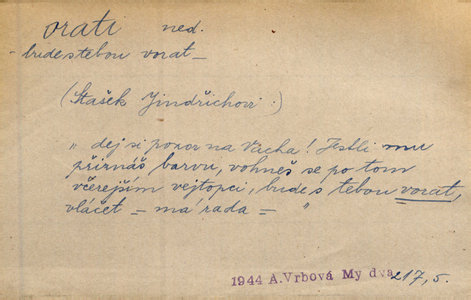 orati ned.
budes tebou vorat –
(Stašek Jindřichovi:)
„ dej si pozor na Vácha! Jestli mu
přirnáš barvu, vohneš se po tom
včerejším vejtopci, bude s tebou vorat,
vláčet = má rada = "
1944 A.Vrbová My dva 217, 5.